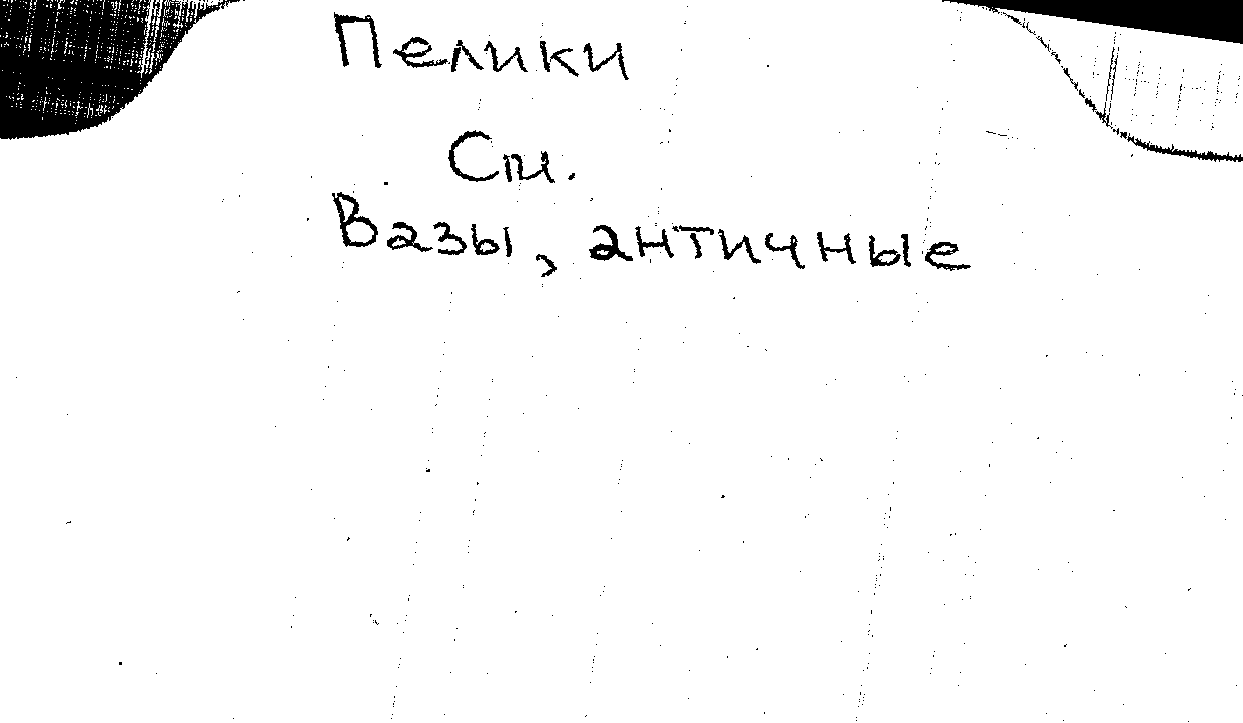 Пелики
См.
Вазы, античные